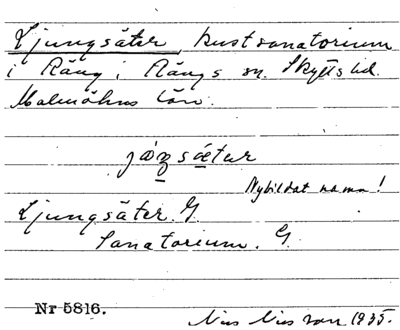 Ljungsäter, kustsanatorium
i Räng i Rängs sn. Skytts hd.
Malmöhus län.
jåzsätur
Nybildat namn!
Ljungsäter. G.
Sanatorium. G.
Nr 5816.
Nils Nilsson 1935.